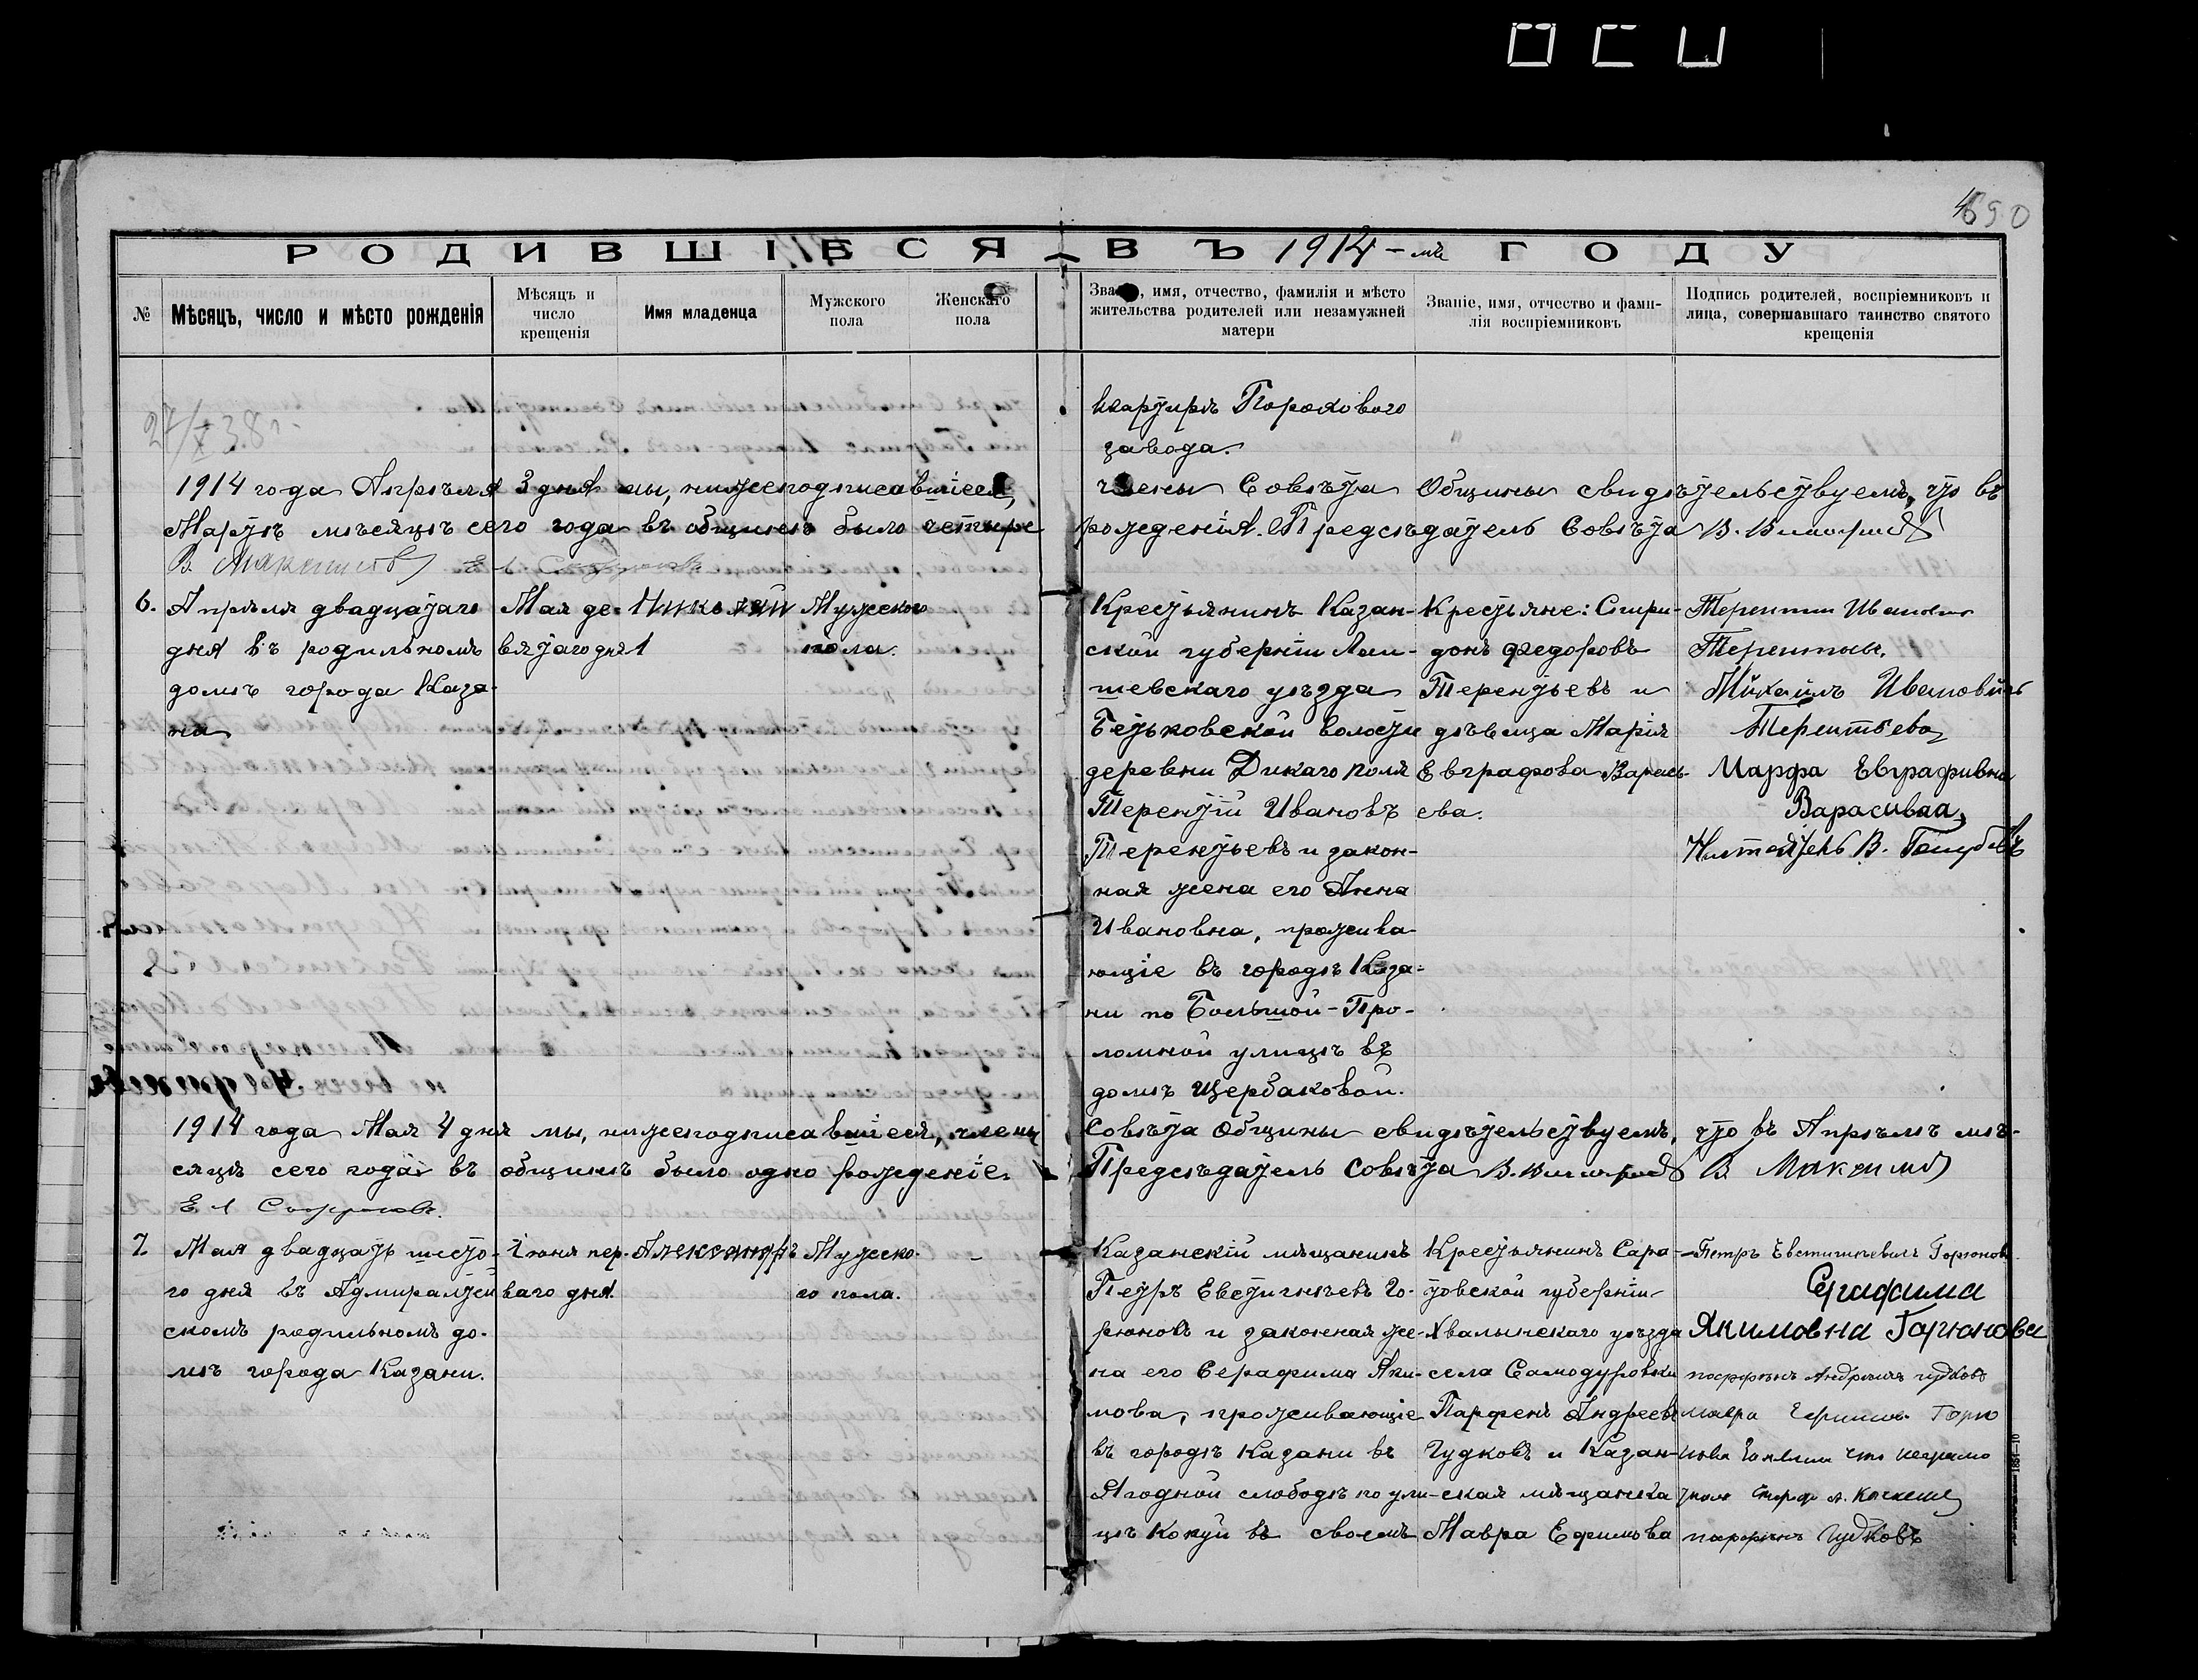 690
РОДИВШІЕСЯ ВЪ 1914-мъ ГОДУ
№
Мѣсяцъ, число и мѣсто рожденія
Мѣсяцъ и
число
крещенія
Имя младенца
Мужского
пола
Женскаго
пола
Званіе, имя, отчество, фамилія и мѣсто
жительства родителей или незамужней
матери
Званіе, имя, отчество и фами-
лія воспріемниковъ
Подпись родителей, воспріемниковъ и
лица, совершавшаго таинство святого
крещенія
27/X 38 г.
квартирѣ Порохового
завода.
1914 года Апрѣля 3 дня мы, нижеподписавшіеся, члены Совѣта Общины свидѣтельствуемъ, что въ
Мартѣ мѣсяцѣ сего года въ общинѣ было четыре рожденія. Предсѣдатель Совѣта В.
В. Максимовъ Е. Л.
6.
Апрѣля двадцатаго
дня въ родильномъ
домѣ города Каза-
на
Мая де-
вятаго дня
Николай
1
Мужского
пола.
Крестьянинъ Казан-
ской губерніи Лаи-
шевскаго уѣзда
Бетьковской волости
деревни Дикаго поля
Терентій Ивановъ
Терентьевъ и закон-
ная жена его Анна
Ивановна, прожива-
ющіе въ городѣ Каза-
ни по Большой-Про-
ломной улицѣ въ
домѣ Щербаковой.
Крестьяне: Спири-
донъ Федоровъ
Терентьевъ и
дѣвица Марія
Евграфова Варась-
ева.
Терентий Иванович
Терентьев.
Михаилъ Ивановичъ
Терентьева
Марфа Евграфивна
Варасиваа
В. Голубевъ
1914 года Мая 4 дня мы, нижеподписавшіеся, члены Совѣта Общины свидѣтельствуемъ, что въ Апрѣлѣ мѣ-
сяцѣ сего года въ общинѣ было одно рожденіе. Предсѣдатель Совѣта В. В. Максимовъ
Е. Л.
7.
Мая двадцать шесто-
го дня въ Адмиралтей
скомъ родильномъ до-
мѣ города Казани.
Іюня пер-
ваго дня.
Александръ
Мужско-
го пола.
-
Казанскій мѣщанинъ
Петръ Евстигнѣевъ Го-
рюновъ и законная же-
на его Серафима Яки-
мова, проживающіе
въ городѣ Казани въ
Ягодной слободѣ по ули-
цѣ Кокуй въ своемъ
Крестьянинъ Сара-
товской губерніи
Хвалынскаго уѣзда
села Самодуровки
Парфенъ Андреевъ
Гудковъ и Казан-
ская мѣщанка
Мавра Ефимова
Петръ Евстигнѣевичъ Горюновъ
Серафима
Якимовна Горюнова
парфенъ Андреичъ гудковъ
мавра Горю
нова
парфенъ Гудковъ